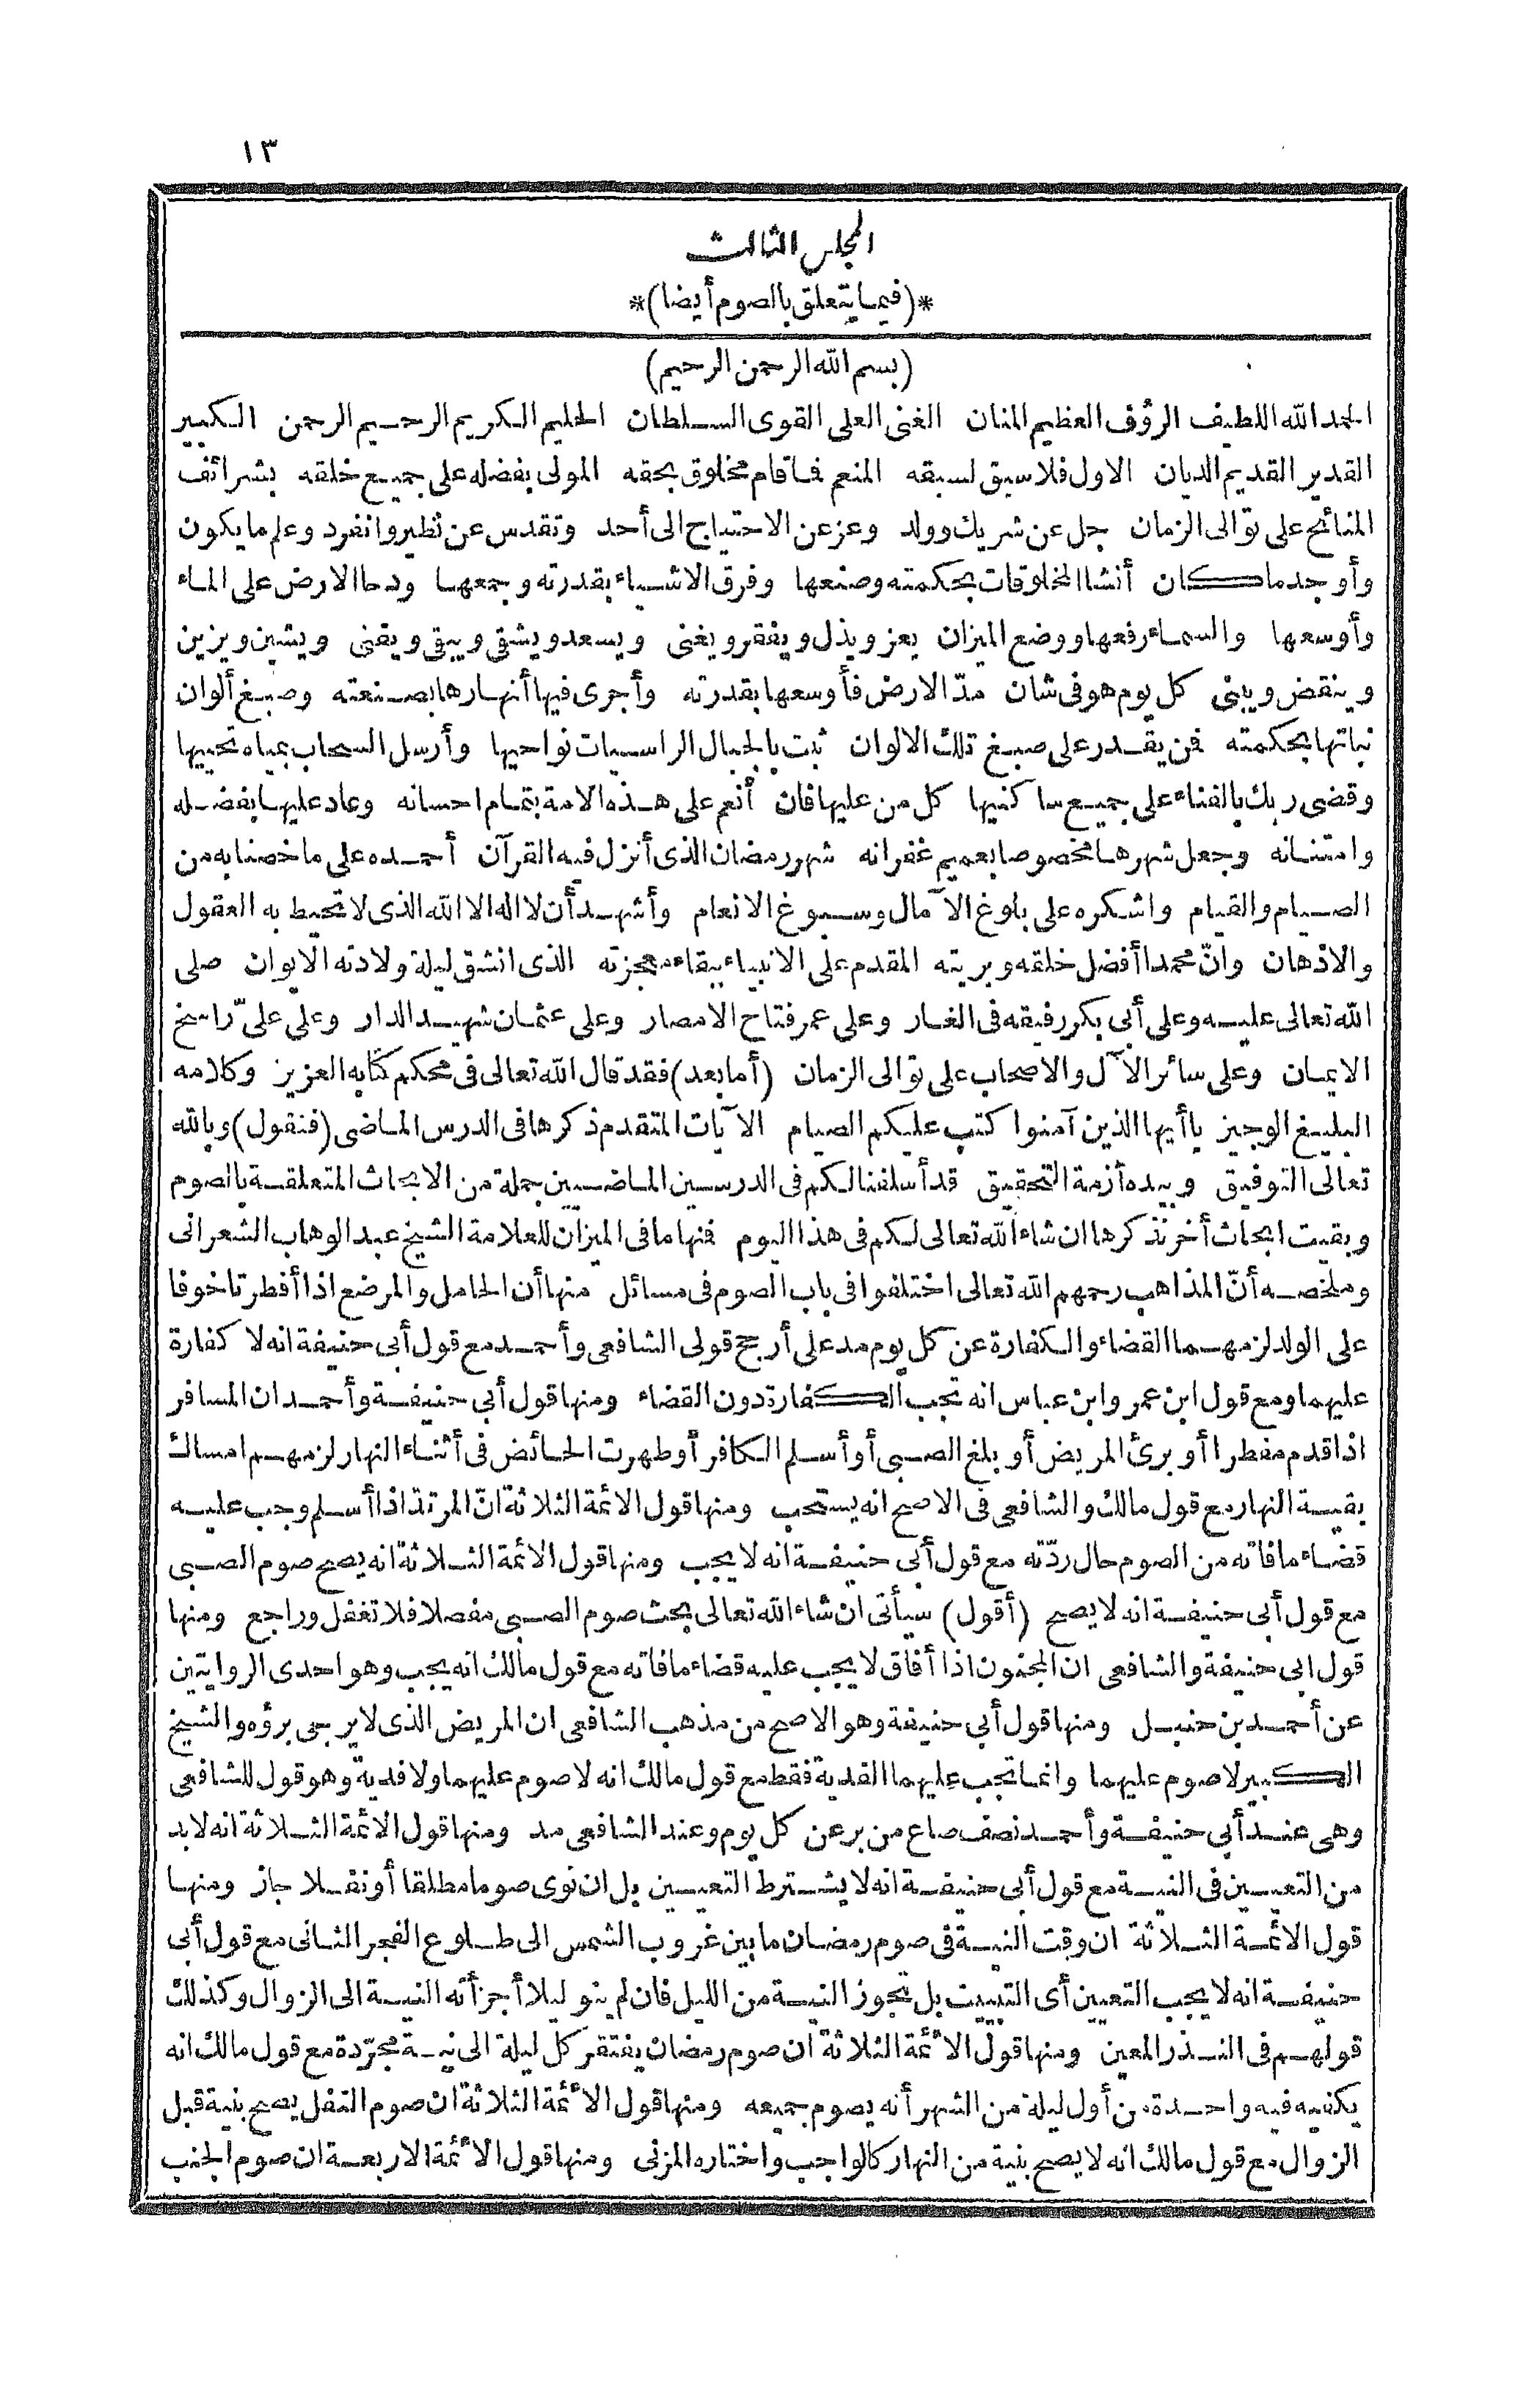 ١٣
المجلس الثالث
*(فيما يتعلق بالصوم أيضا)*
(بسم الله الرحمن الرحيم)
الحمد الله اللطيف الرؤف العظيم المنان الغنى العلى القوى السلطان الحليم الكريم الرحيم الرحمن الكبير
القدير القديم الديان الاول فلا سبق لسبقه المنعم فاقام مخلوق بحقه المولى بفضله على جميع خلقه بشرائف
المنائح على توالى الزمان جل عن شريك وولد وعز عن الاحتياج الى أحد وتقدس عن نظير وانفرد وعلم ما يكون
وأوجد ما كان أنشا المخلوقات بحكمته وصنعها وفرق الاشياء بقدرته وجمعها ودحا الارض على الماء
وأوسعها والسماء رفعها ووضع الميزان يعز ويذل ويفقر ويغنى ويسعد ويشقى ويبقى ويقنى ويشين ويزين
وينقض ويبنى كل يوم هو فى شان مدّ الارض فأوسعها بقدرته وأجرى فيها أنهارها بصنعته وصبغ ألوان
نباتها بحكمته فمن يقدر على صبغ تلك الالوان ثبت بالجبال الراسيات نواحيها وأرسل السحاب بمياه تحييها
وقضى ربك بالفناء على جميع ساكنيها كل من عليها فان أنعم على هذه الامة بتمام احسانه وعاد عليها بفضله
وامتنانه وجعل شهرها مخصوصا بعميم غفرانه شهر رمضان الذى أنزل فيه القرآن أحمده على ما خصنا به من
الصيام والقيام واشكره على بلوغ الآمال وسبوغ الانعام وأشهد أن لا اله الا الله الذى لا تحيط به العقول
والاذهان وانّ محمدا أفضل خلقه وبريته المقدم على الانبياء ببقاء معجزته الذى انشق ليلة ولادته الايوان صلى
الله تعالى عليه وعلى أبى بكر رفيقه فى الغار وعلى عمر فتاح الامصار وعلى عثمان شهيد الدار وعلى علىّ راسخ
الايمان وعلى سائر الآل والاصحاب على توالى الزمان (أما بعد) فقد قال الله تعالى فى محكم كتابه العزيز وكلامه
البليغ الوجيز يا أيها الذين آمنوا كتب عليكم الصيام الآيات المتقدم ذكرها فى الدرس الماضى (فنقول) وبالله
تعالى التوفيق وبيده أزمة التحقيق قد أسلفنا لكم فى الدرسين الماضيين جملة من الابحاث المتعلقة بالصوم
وبقيت ابحاث أخر نذكرها ان شاء الله تعالى لكم فى هذا اليوم فمنها ما فى الميزان للعلامة الشيخ عبد الوهاب الشعرانى
وملخصه أنّ المذاهب رحمهم الله تعالى اختلفوا فى باب الصوم فى مسائل منها أن الحامل والمرضع اذا أفطرتا خوفا
على الولد لزمهما القضاء والكفارة عن كل يوم مد على أرجح قولى الشافعى وأحمد مع قول أبى حنيفة انه لا كفارة
عليهما ومع قول ابن عمر وابن عباس انه تجب الكفارة دون القضاء ومنها قول أبى حنيفة وأحمد ان المسافر
اذا قدم مفطرا أو برئ المريض أو بلغ الصبى أو أسلم الكافر أو طهرت الحائض فى أثناء النهار لزمهم امساك
بقية النهار مع قول مالك والشافعى فى الاصح انه يستحب ومنها قول الائمة الثلاثة انّ المرتد اذا أسلم وجب عليه
قضاء ما فاته من الصوم حال ردّته مع قول أبى حنيفة انه لا يجب ومنها قول الائمة الثلاثة انه يصح صوم الصبى
مع قول أبى حنيفة انه لا يصح (أقول) سيأتى ان شاء الله تعالى بحث صوم الصبى مفصلا فلا تغفل وراجع ومنها
قول ابى حنيفة والشافعى ان المجنون اذا أفاق لا يجب عليه قضاء ما فاته مع قول مالك انه يجب وهو احدى الروايتين
عن أحمد بن حنبل ومنها قول أبى حنيفة وهو الاصح من مذهب الشافعى ان المريض الذى لا يرجى برؤه والشيخ
الكبير لا صوم عليهما وانما تجب عليهما الفدية فقط مع قول مالك انه لا صوم عليهما ولا فدية وهو قول للشافعى
وهى عند أبى حنيفة وأحمد نصف صاع من بر عن كل يوم وعند الشافعى مد ومنها قول الائمة الثلاثة انه لا بد
من التعيين فى النية مع قول أبى حنيفة انه لا يشترط التعيين بل ان نوى صوما مطلقا أو نفلا جاز ومنها
قول الائمة الثلاثة ان وقت النية فى صوم رمضان ما بين غروب الشمس الى طلوع الفجر الثانى مع قول أبى
حنيفة انه لا يجب التعيين أى التبييت بل تجوز النية من الليل فان لم ينو ليلا أجزأته النية الى الزوال وكذلك
قولهم فى النذر المعين ومنها قول الائمة الثلاثة ان صوم رمضان يفتقر كل ليلة الى نية مجرّدة مع قول مالك انه
يكفيه فيه واحدة من أول ليلة من الشهر أنه يصوم جميعه ومنها قول الائمة الثلاثة ان صوم النفل يصح بنية قبل
الزوال مع قول مالك انه لا يصح بنية من النهار كالواجب واختاره المزنى ومنها قول الائمة الاربعة ان صوم الجنب